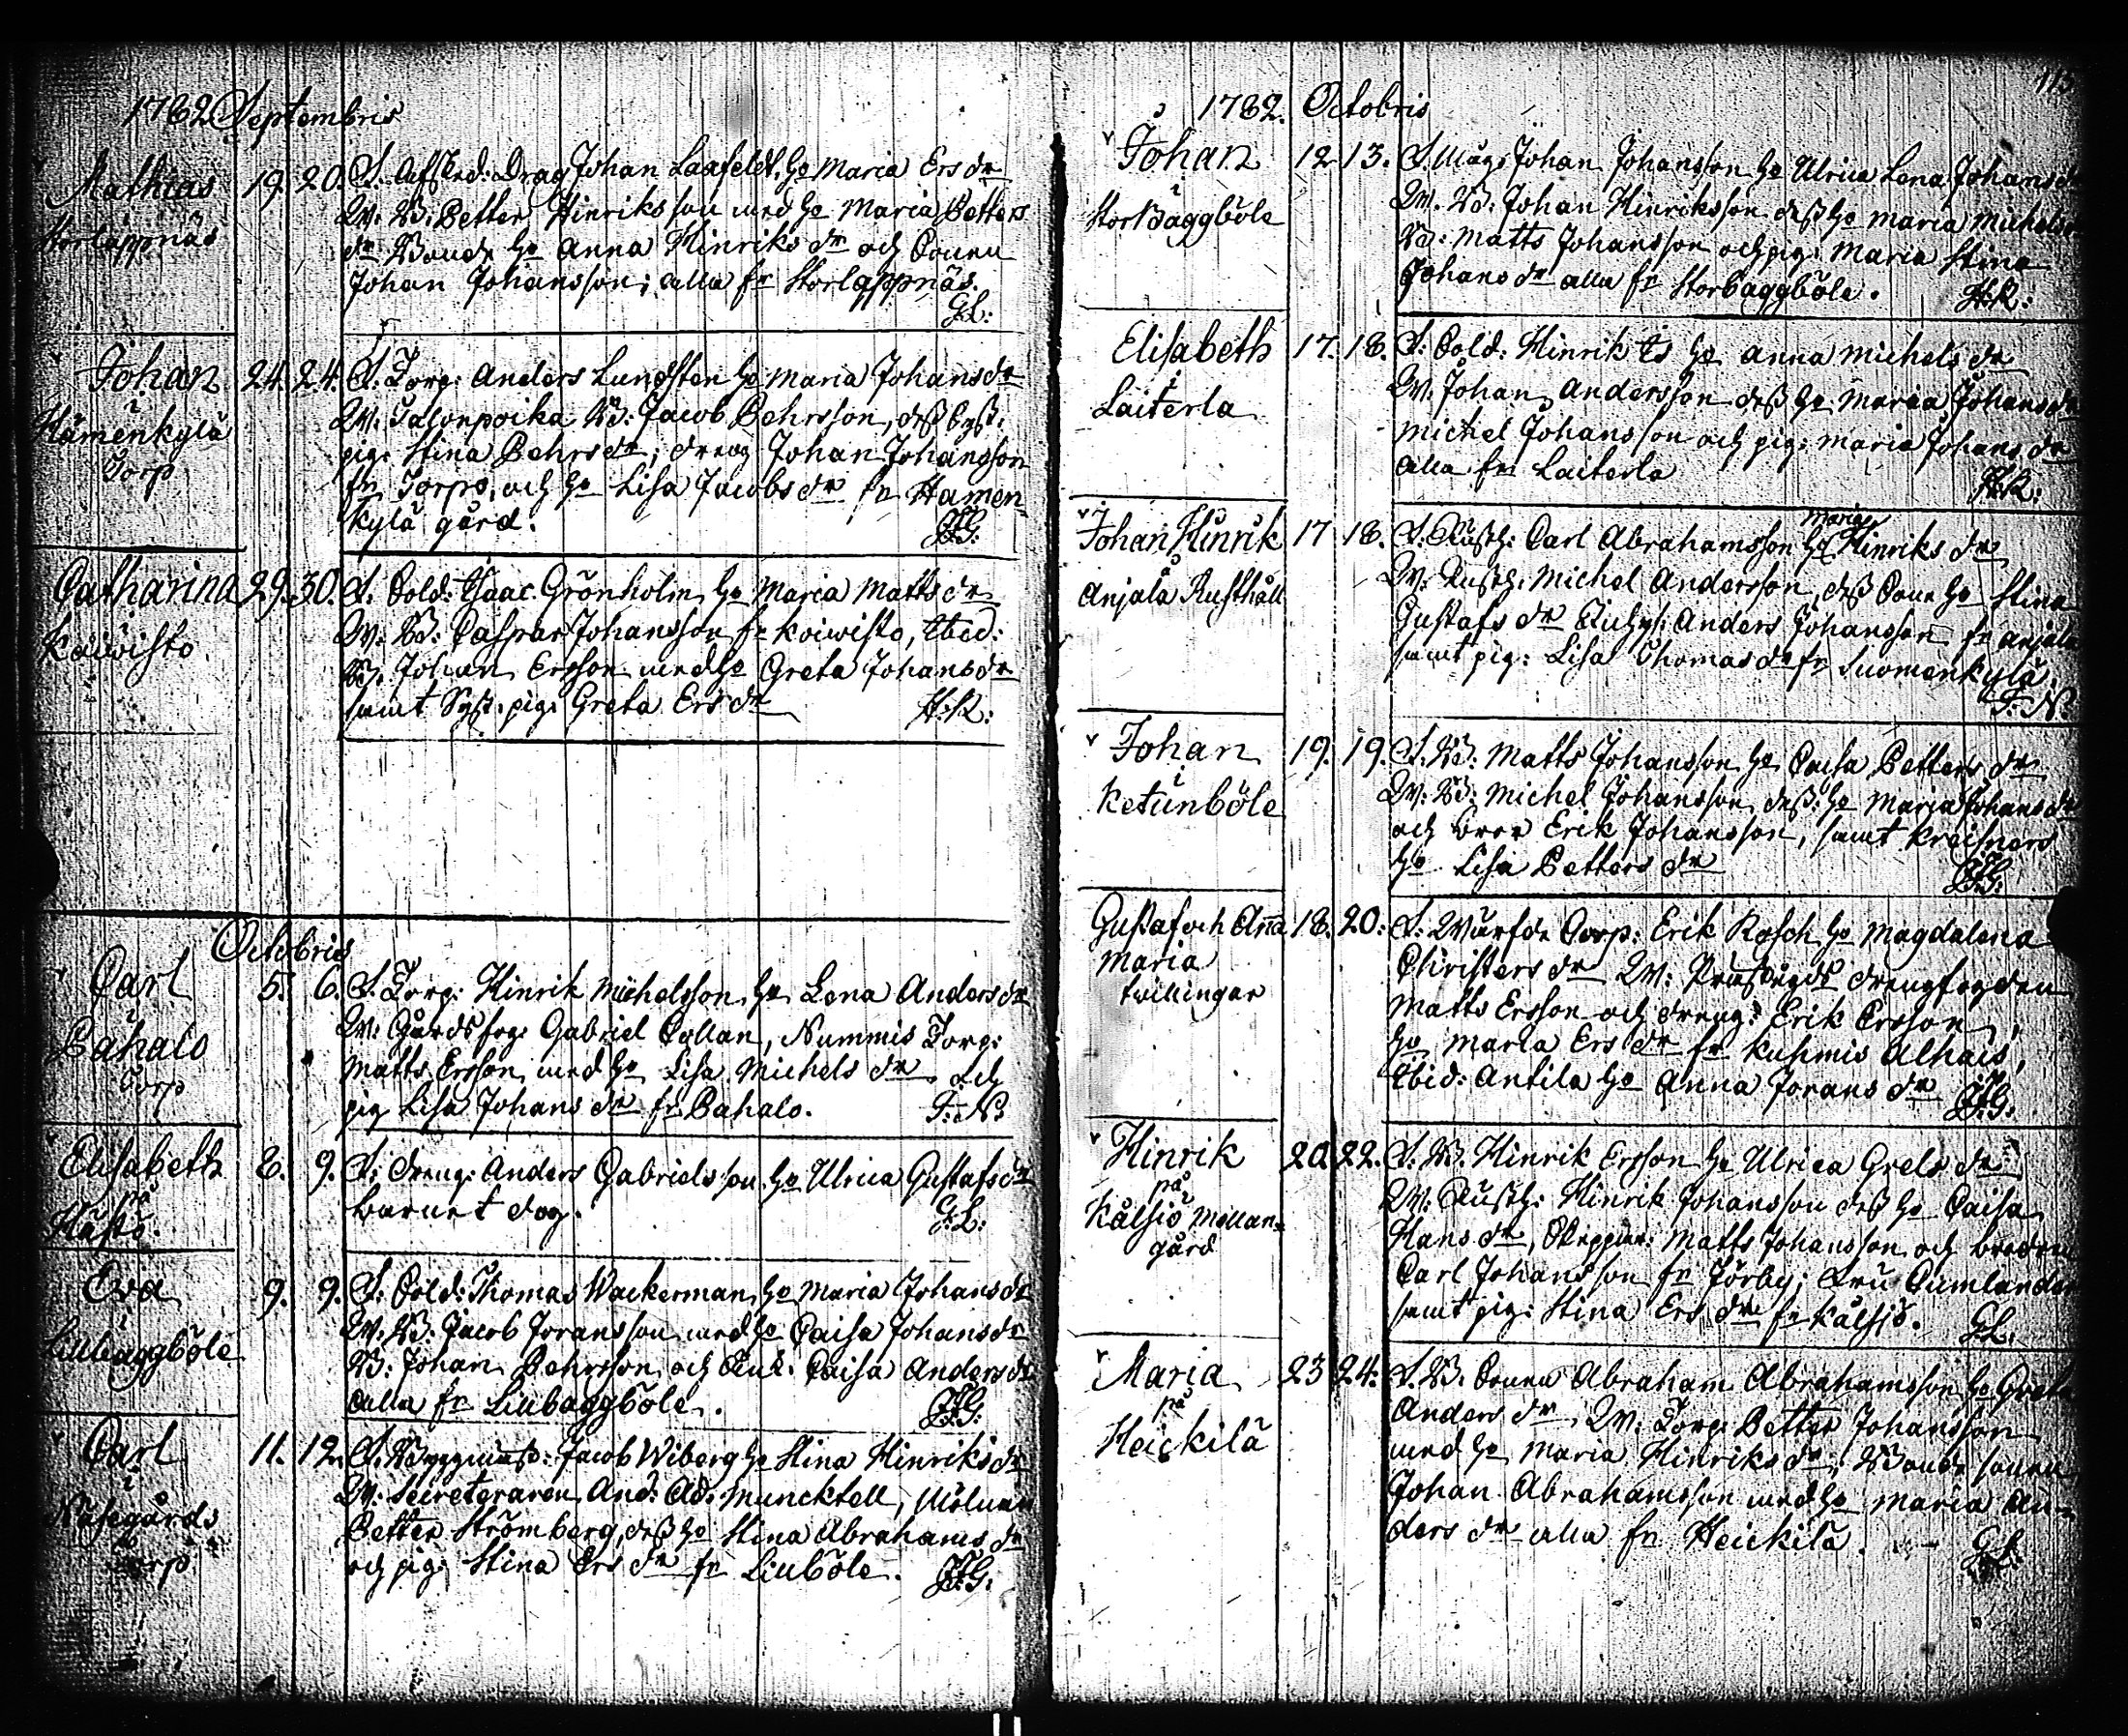 1782 Septembris
Mathias
Storlappnäs
19. 20. F. Afsked: Drag Johan Laafeldt, Ho Maria Ers dr
W: B. Petter Hinriksson med Ho Maria Petters
dr Bonde Ho Anna Hinriks dr och Sonen
Johan Johansson; alla fr Storlappnäs.
G:L:
Johan
i
Hämenkylä
Torp
24. 24. F: Torp: Anders Lundsten Ho Maria Johans dr
W. Talonpoika B: Jacob Pehrsson, dess
pig: Stina Pehrs dr; dreng Johan Johansson
fr Torpo, och Ho Lisa Jacobs dr fr Hamen-
kylä gård.
Catharina
i
Koiwisto
29. 30. F. Sold: Isaac Grönholm Ho Maria Matts dr
W: B: Caspar Johansson fr Koiwisto, Ibid:
B. Johan Ersson med Ho Greta Johans dr
samt Syst. pig: Greta Ers dr
H:R:
Octobris
Carl
i
Pahalo
Torp
5. 6. F. Torp: Hinrik Michelsson Ho Lena Anders dr
W: Gårdsfog: Gabriel Collan, Nummis Torp:
Matts Ersson med Ho Lisa Michels dr och
pig Lisa Johans dr fr Pahalo.
F: N:
Elisabeth
på
Hästö.
8. 9. F: dreng: Anders Gabrielsson Ho Ulrica Gustafs dr
barnet dog.
G:L:
Eva
i
Lillbaggböle
9. 9. F: Sold: Thomas Wackerman Ho Maria Johans dr
W. B: Jacob Joransson med Ho Caisa Johans dr
B: Johan Pehrsson och Enk: Caisa Anders dr
alla fr Lillbaggböle.
Carl
i
Näsegårds
Torp
11. 12. F. Byggmäst: Jacob Wiberg Ho Stina Hinriks dr
W: Secreteraren And: Ad: Muncktell, Mölnarn
Petter Strömberg, dess Ho Stina Abrahams dr
och pig: Stina Ers dr fr Liuböle.
113
1782. Octobris
Johan
i
Storbaggböle
12 13. F. Måg: Johan Johansson Ho Ulrica Lena Johans dr
W. B: Johan Hinriksson dess Ho Maria Michels dr
B: Matts Johansson och pig: Maria Stina
Johans dr alla fr Storbaggböle.
H:R:
Elisabeth
i
Laiterla
17. 18. F: Sold: Hinrik Ho Anna Michels dr
W. Johan Andersson dess Ho Maria Johans dr
Michel Johansson och pig: Maria Johans dr
alla fr Laiterla
H:R:
Johan Hinrik
Anjala Rusthåll
17 18. F: Rusth: Carl Abrahamsson Ho Maria Hinriks dr
W: Rusth: Michel Andersson, dess Sons Ho Stina
Gustafs dr Anders Johansson fr Anjala
samt pig: Lisa Thomas dr fr Suomenkylä.
F: N:
Johan
i
Ketunböle
19. 19. F. B: Matts Johansson Ho Caisa Petters dr
W: B: Michel Johansson dess Ho Maria Johans dr
och bror Erik Johansson, samt
Ho Lisa Petters dr
Gustaf och Anna
Maria
tvillingar
18. 20: F: Corp: Erik Ho Magdalena
Christers dr W: drengfogden
Matts Ersson och dreng: Erik Ersson,
Ho Maria Ers dr fr Alhais,
Ibid: Antila Ho Anna Jorans dr
Hinrik
på
Kälsiö Mellan-
gård
20. 22. F. B. Hinrik Ersson Ho Ulrica Grels dr
W: Rusth: Hinrik Johansson dess Ho Caisa
Hans dr, Matts Johansson och brodren
Carl Johansson fr Jörby; Fru Cumlander
samt pig: Stina Ers dr fr Kälsiö.
G:L:
Maria
på
Heickilä
23 24. F. B. Sonen Abraham Abrahamsson Ho Greta
Anders dr W: Torp: Petter Johansson
med Ho Maria Hinriks dr; Bonde sonen
Johan Abrahamsson med Ho Maria An-
ders dr alla fr Heickilä.
G:L: